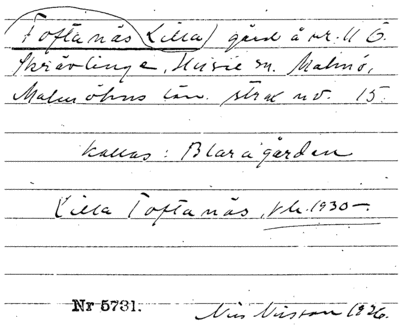 Toftanäs (Lilla) gård å nr. 11 Ö.
Skrävlinge, Husie sn. Malmö,
Malmöhus län. strax nv. 15.
kallas: Blara gården
Lilla Toftanäs, 1930-.
Nr 5731.
Nils Nilsson 1936.